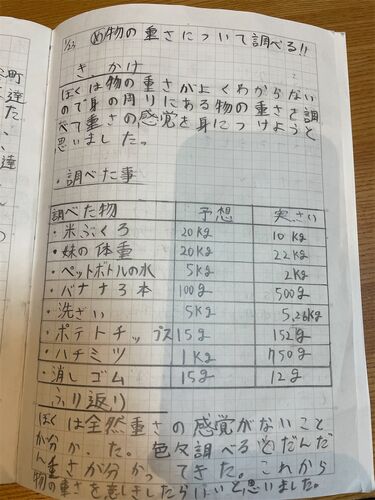 町達
た。
、達
1/23 ㋱物の重さについて調べる!!
きっかけ
ぼくは物の重さがよくわからない
ので身の周りにある物の重さを調
べて重さの感覚を身につけようと
思いました。
・調べた事
調べた物 予想 実さい
・米ぶくろ 20kg 10kg
・妹の体重 20kg 22kg
・ペットボトルの水 5kg 2kg
・バナナ3本 100g 500g
・洗ざい 5kg 5,26kg
・ポテトチップス 15g 152g
・ハチミツ 1kg 750g
・消しゴム 15g 12g
ふり返り
ぼくは全然重さの感覚がないこと
が分かった。色々調べるとだんだ
ん重さが分かってきた。これから
物の重さを意しきしたらいいと思いました。